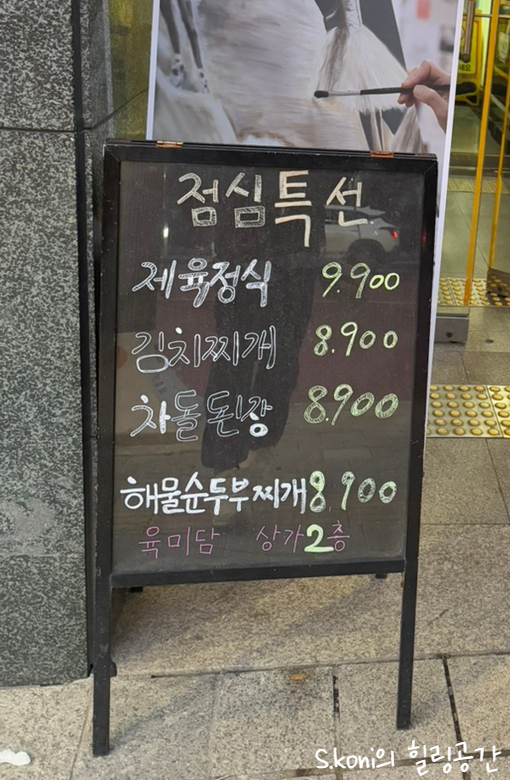 점심특선
제육정식 9.900
김치찌개 8.900
차돌된장 8.900
해물순두부찌개 8.900
육미담 상가2층
S.koni의 힐링공간